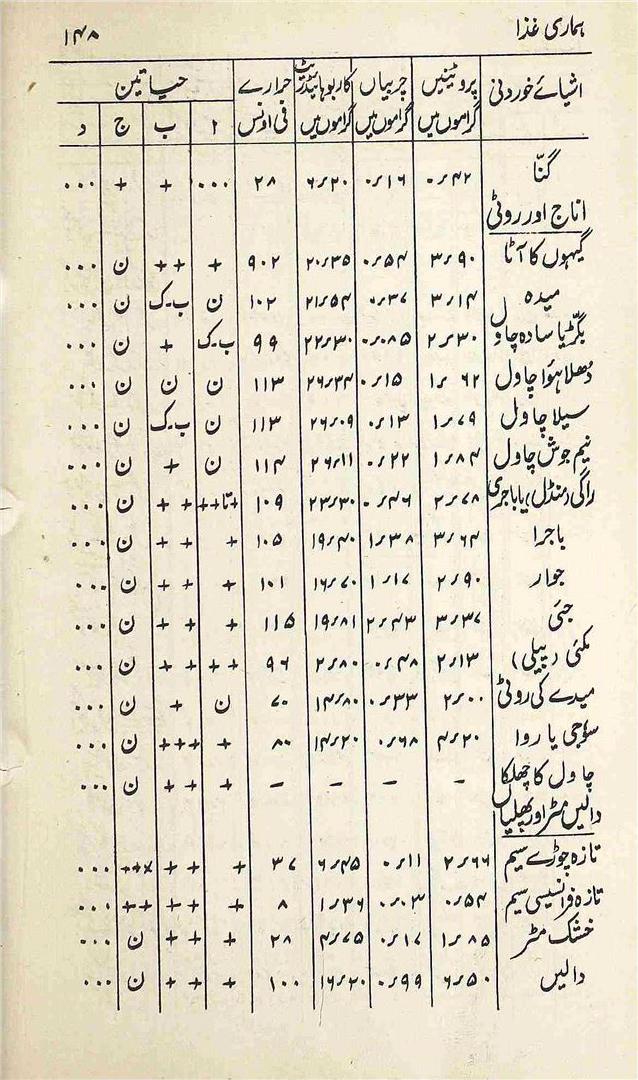 ہماری غذا ۱۴۸
اشیائے خوردنی پروٹینیں گراموں میں چربیاں گراموں میں کاربوہائیڈریٹ گراموں میں حرارے فی اونس حیاتین
ا ب ج د
گنّا ۰٫۴۲ ۰٫۱۶ ۶٫۲۰ ۲۸ ... + + ...
اناج اور روٹی
گیہوں کا آٹا ۳٫۹۰ ۰٫۵۴ ۲۰٫۳۵ ۹۰۲ + ++ ن ...
میدہ ۳٫۱۴ ۰٫۳۷ ۲۱٫۵۴ ۱۰۲ ن ب۔ک ن ...
بگڑیا سادہ چاول ۲٫۳۰ ۰٫۰۸۵ ۲۲٫۳۰ ۹۹ ب۔ک + ن ...
دُھلا ہوا چاول ۱٫۶۲ ۰٫۱۵ ۲۶٫۳۴ ۱۱۳ ن ن ن ...
سیلا چاول ۱٫۷۹ ۰٫۱۳ ۲۶٫۰۹ ۱۱۳ ن ب۔ک ن ...
نیم جوش چاول ۱٫۸۴ ۰٫۲۲ ۲۶٫۱۱ ۱۱۴ ن + ن ...
راگی (منڈل) یا باجری ۲٫۷۸ ۰٫۴۶ ۲۳٫۳۰ ۱۰۹ +تا++ ++ ن ...
باجرا ۳٫۶۴ ۱٫۳۸ ۱۹٫۴۰ ۱۰۵ + ++ ن ...
جوار ۲٫۹۰ ۱٫۱۷ ۱۶٫۷۰ ۱۰۱ + ++ ن ...
جئی ۳٫۳۷ ۲٫۴۳ ۱۹٫۸۱ ۱۱۵ + ++ ن ...
مکئی (پیلی) ۲٫۱۳ ۰٫۴۸ ۲٫۸۰ ۹۶ ++ ++ ن ...
میدے کی روٹی ۲٫۰۰ ۰٫۳۳ ۱۴٫۸۰ ۷۰ ن + ن ...
سوجی یا روا ۴٫۲۰ ۰٫۶۸ ۱۴٫۲۰ ۸۰ + +++ ن ...
چاول کا چھلکا - - - - + ++ ن ...
دالیں مٹر اور پھلیاں
تازہ چوڑے سیم ۲٫۶۶ ۰٫۱۱ ۶٫۴۵ ۳۷ + ++ ++× ...
تازہ فرانسیسی سیم ۰٫۵۴ ۰٫۰۳ ۱٫۳۶ ۸ + ++ ++ ...
خشک مٹر ۱٫۸۵ ۰٫۱۷ ۴٫۷۵ ۲۸ + ++ ن ...
دالیں ۶٫۵۰ ۰٫۹۹ ۱۶٫۲۰ ۱۰۰ + ++ ن ...